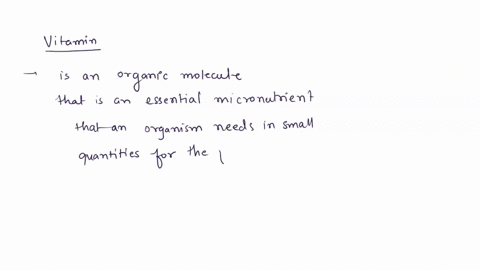 Vitamin
→ is an organic molecule
that is an essential micronutrient
that an organism needs in small
quantities for the